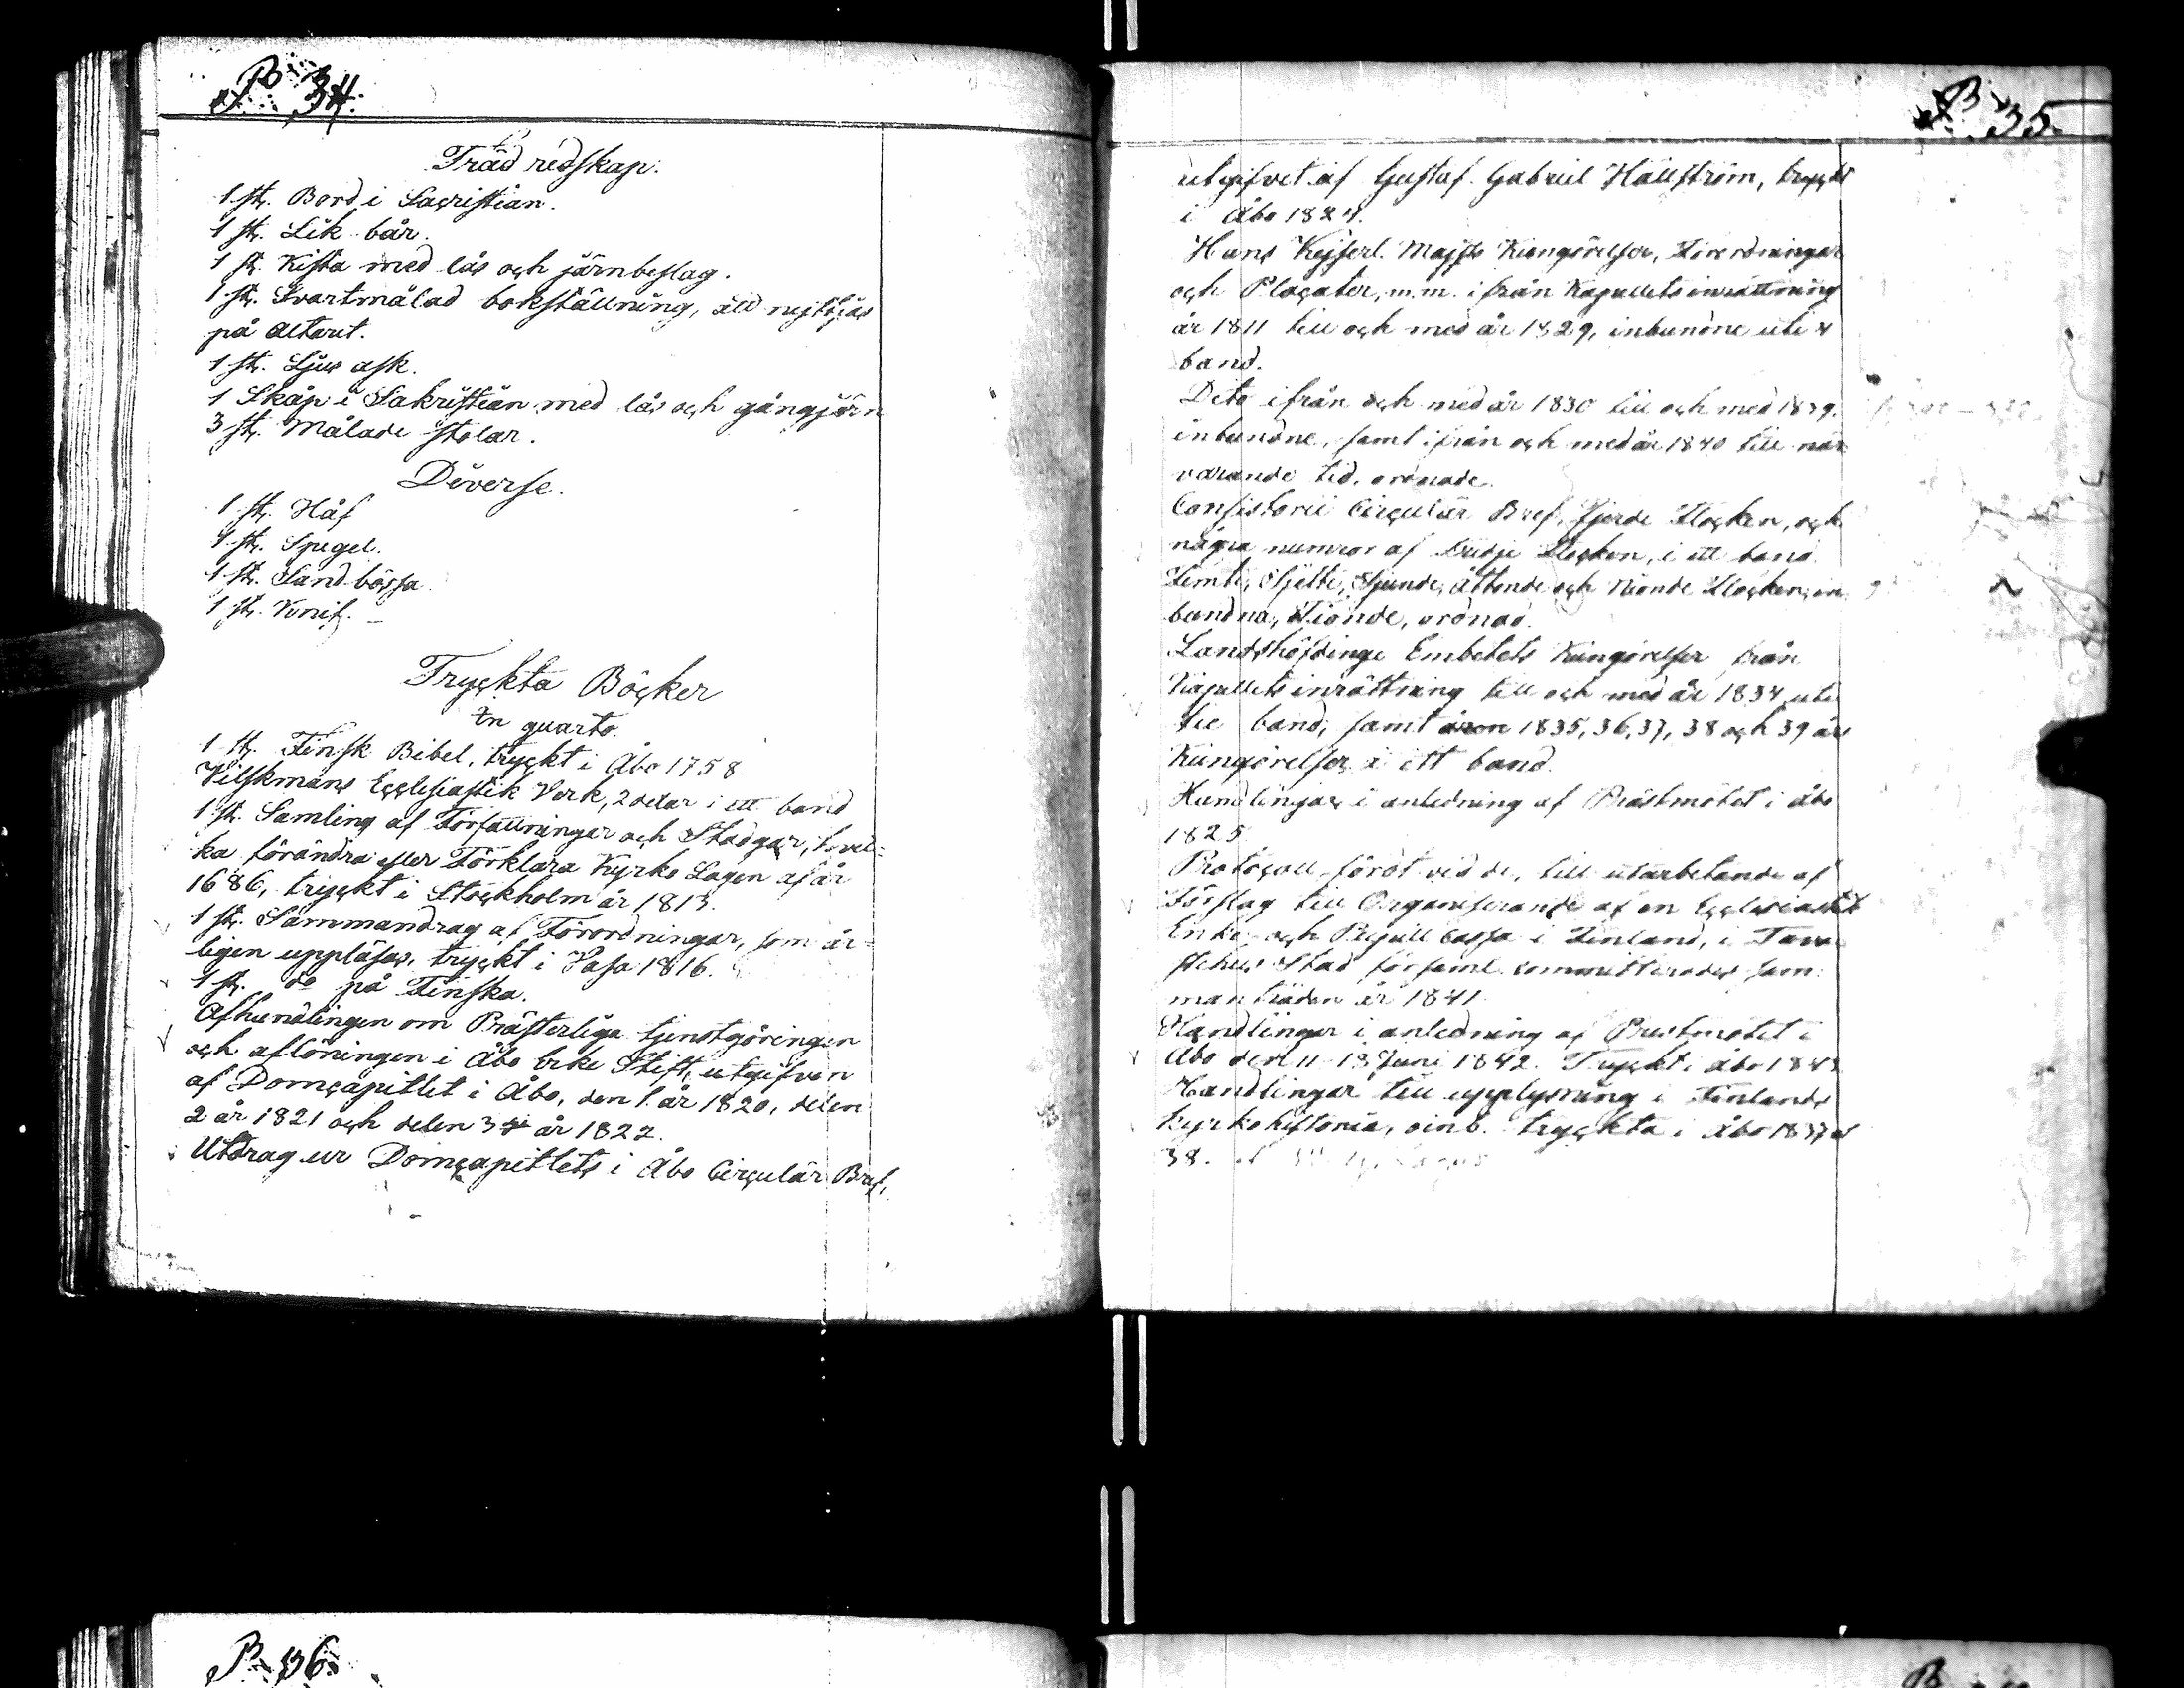 P 34.
Träd redskap.
1 st. Bord i Sacristian.
1 st. Lik bår.
1 st. Kista med lås och järnbeslag.
1 st. Svartmålad bokställning, att nyttjas
på altaret.
1 st. Ljus ask.
1 Skåp i Sakristian med lås och gångjörn
3 st. Målade stolar.
Diverse.
1 st. Håf
1 st. Spegel.
1 st. Sand bössa
1 st. Knif.
Tryckta Böcker
In quarto.
1 st. Finsk Bibel, tryckt i Åbo 1758.
Vilskmans Ecclesiastik Verk, 2 delar i ett band
1 st. Samling af Författningar och Stadgar, hvil-
ka förändra eller Förklara Kyrko Lagen af år
1686, tryckt i Stockholm år 1813.
1 st. Sammandrag af Förordningar, som år-
ligen uppläsas, tryckt i Vasa 1816.
1 st. do på Finska.
Afhandlingen om Prästerliga tjenstgöringen
och aflöningen i Åbo Erke Stift, utgifven
af Domcapitlet i Åbo, den 1. år 1820, delen
2 år 1821 och delen 3 år 1822.
Utdrag ur Domcapitlets i Åbo Circulär Bref,
P 35.
utgifvet af Gustaf Gabriel Hällström, tryckt
i Åbo 1824.
Hans Kejserl. Majsts Kungörelser, Förordningar
och Placater, m.m. ifrån Kapellets inrättning
år 1811 till och med år 1829, inbundne uti 4
band.
Dito ifrån och med år 1830 till och med 1839.
inbundne, samt ifrån och med år 1840 till när
varande tid, ordnade.
Consistorii Circulär Bref, Fjerde Flocken, och
några numror af tredje Flocken, i ett band
Femte, Sjette, Sjunde, Åttonde och Nionde Flocken, in
bundna, Tionde, ordnad.
Landshöfdinge Embetets Kungörelser från
Kapellets inrättning till och med år 1834 uti
tie band, samt åren 1835, 36, 37, 38 och 39 års
Kungörelser i ett band.
Handlingar i anledning af Prästmötet i Åbo
1825
Protocoll fördt vid de, till utarbetande af
Förslag till Organiserande af en Ecclesiastik
Enke- och Pupill Cassa i Finland, i Tava-
stehus Stad församl. committerades sam-
manträden år 1841.
Handlingar i anledning af Prestmötet i
Åbo den 11-13 Juni 1842. Tryckt i Åbo 1843
Handlingar till upplysning i Finlands
kyrkohistoria, oinb. tryckta i Åbo 1837 et
38.
P. 36.